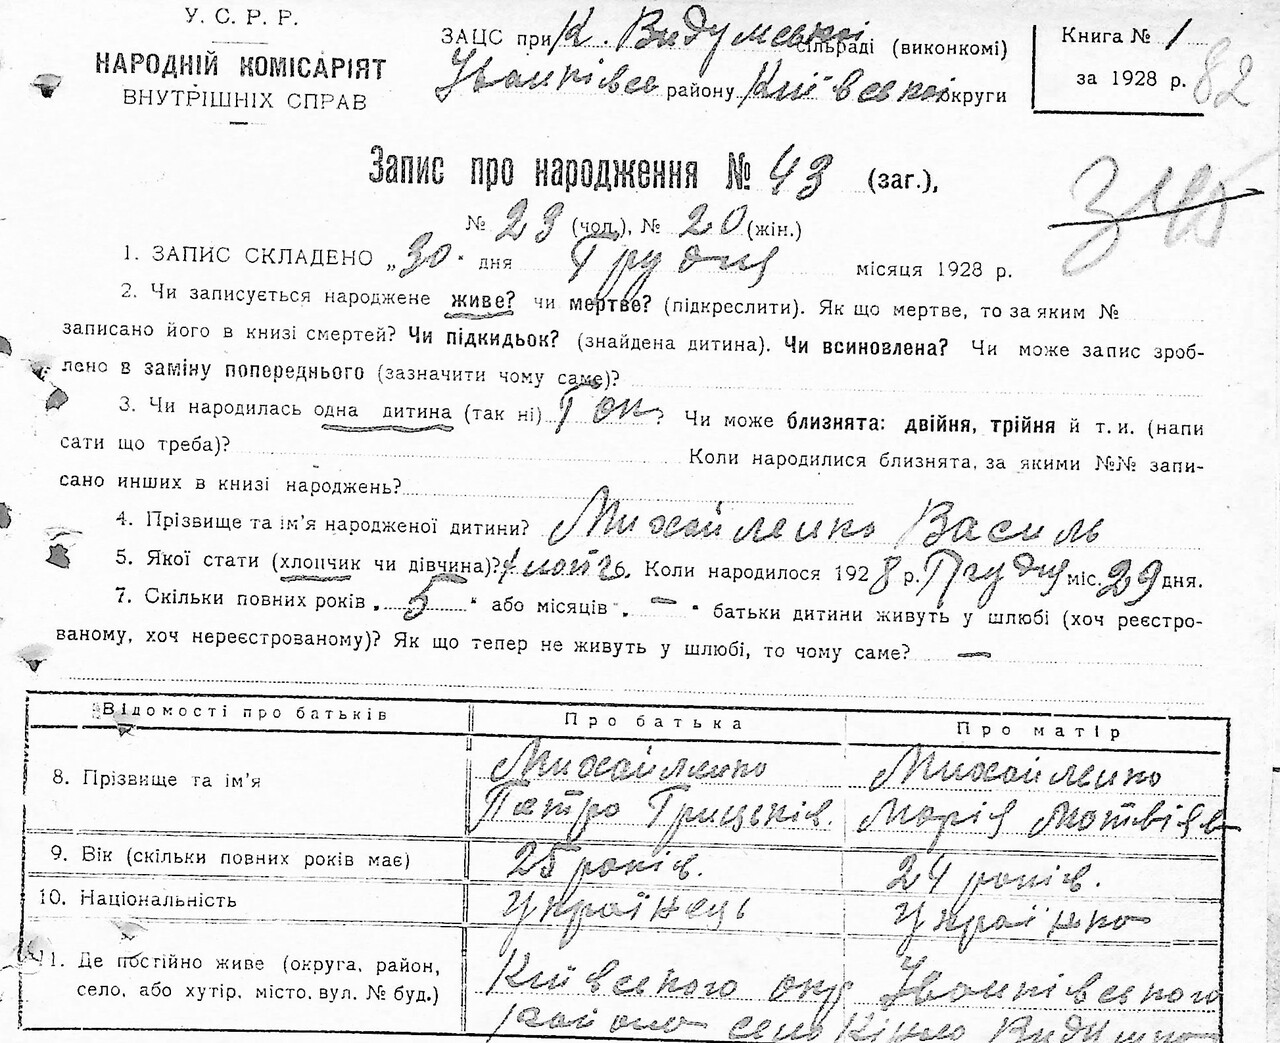 У. С. Р. Р.
НАРОДНІЙ КОМІСАРІЯТ
ВНУТРІШНІХ СПРАВ
ЗАЦС при К. Видумській сільраді (виконкомі)
Іванківсь району Київської округи
Книга № 1
за 1928 р.
82
Запис про народження № 43 (заг.),
№ 23 (чол.), № 20 (жін.)
1. ЗАПИС СКЛАДЕНО „30" дня Грудня місяця 1928 р.
2. Чи записується народжене живе? чи мертве? (підкреслити). Як що мертве, то за яким №
записано його в книзі смертей? Чи підкидьок? (знайдена дитина). Чи всиновлена? Чи може запис зроб-
лено в заміну попереднього (зазначити чому саме)?
3. Чи народилась одна дитина (так ні) Чи може близнята: двійня, трійня й т. и. (напи
сати що треба)? Коли народилися близнята, за якими №№ запи-
сано инших в книзі народжень?
4. Прізвище та ім'я народженої дитини? Михайленко Василь
5. Якої стати (хлопчик чи дівчина)? 6. Коли народилося 1928 р. Грудня міс. 29 дня.
7. Скільки повних років „ 5 " або місяців „ — " батьки дитини живуть у шлюбі (хоч реєстро-
ваному, хоч нереєстрованому)? Як що тепер не живуть у шлюбі, то чому саме? —
Відомості про батьків Про батька Про матір
8. Прізвище та ім'я Михайленко Михайленко
Петро Грицьків. Марія Мотвієв
9. Вік (скільки повних років має) 25 років. 24 років.
10. Національність Українець Українка
11. Де постійно живе (округа, район,
село, або хутір, місто, вул. № буд.)
Київського окр Іванківського
району село Кірло Видумка